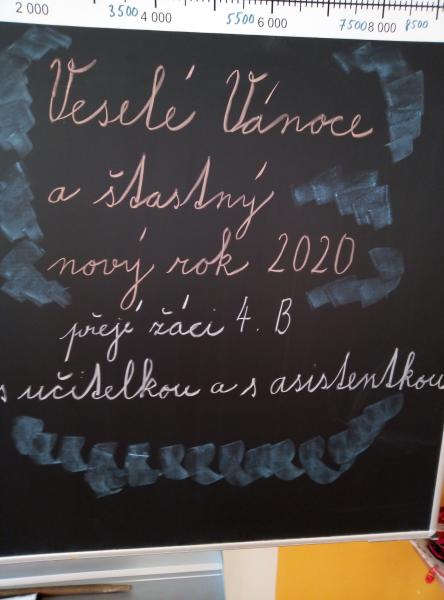 2 000 3500 4 000 5500 6 000 7500 8 000 8500
Veselé Vánoce
a štastný
nový rok 2020
přejí žáci 4. B
s učitelkou a s asistentkou